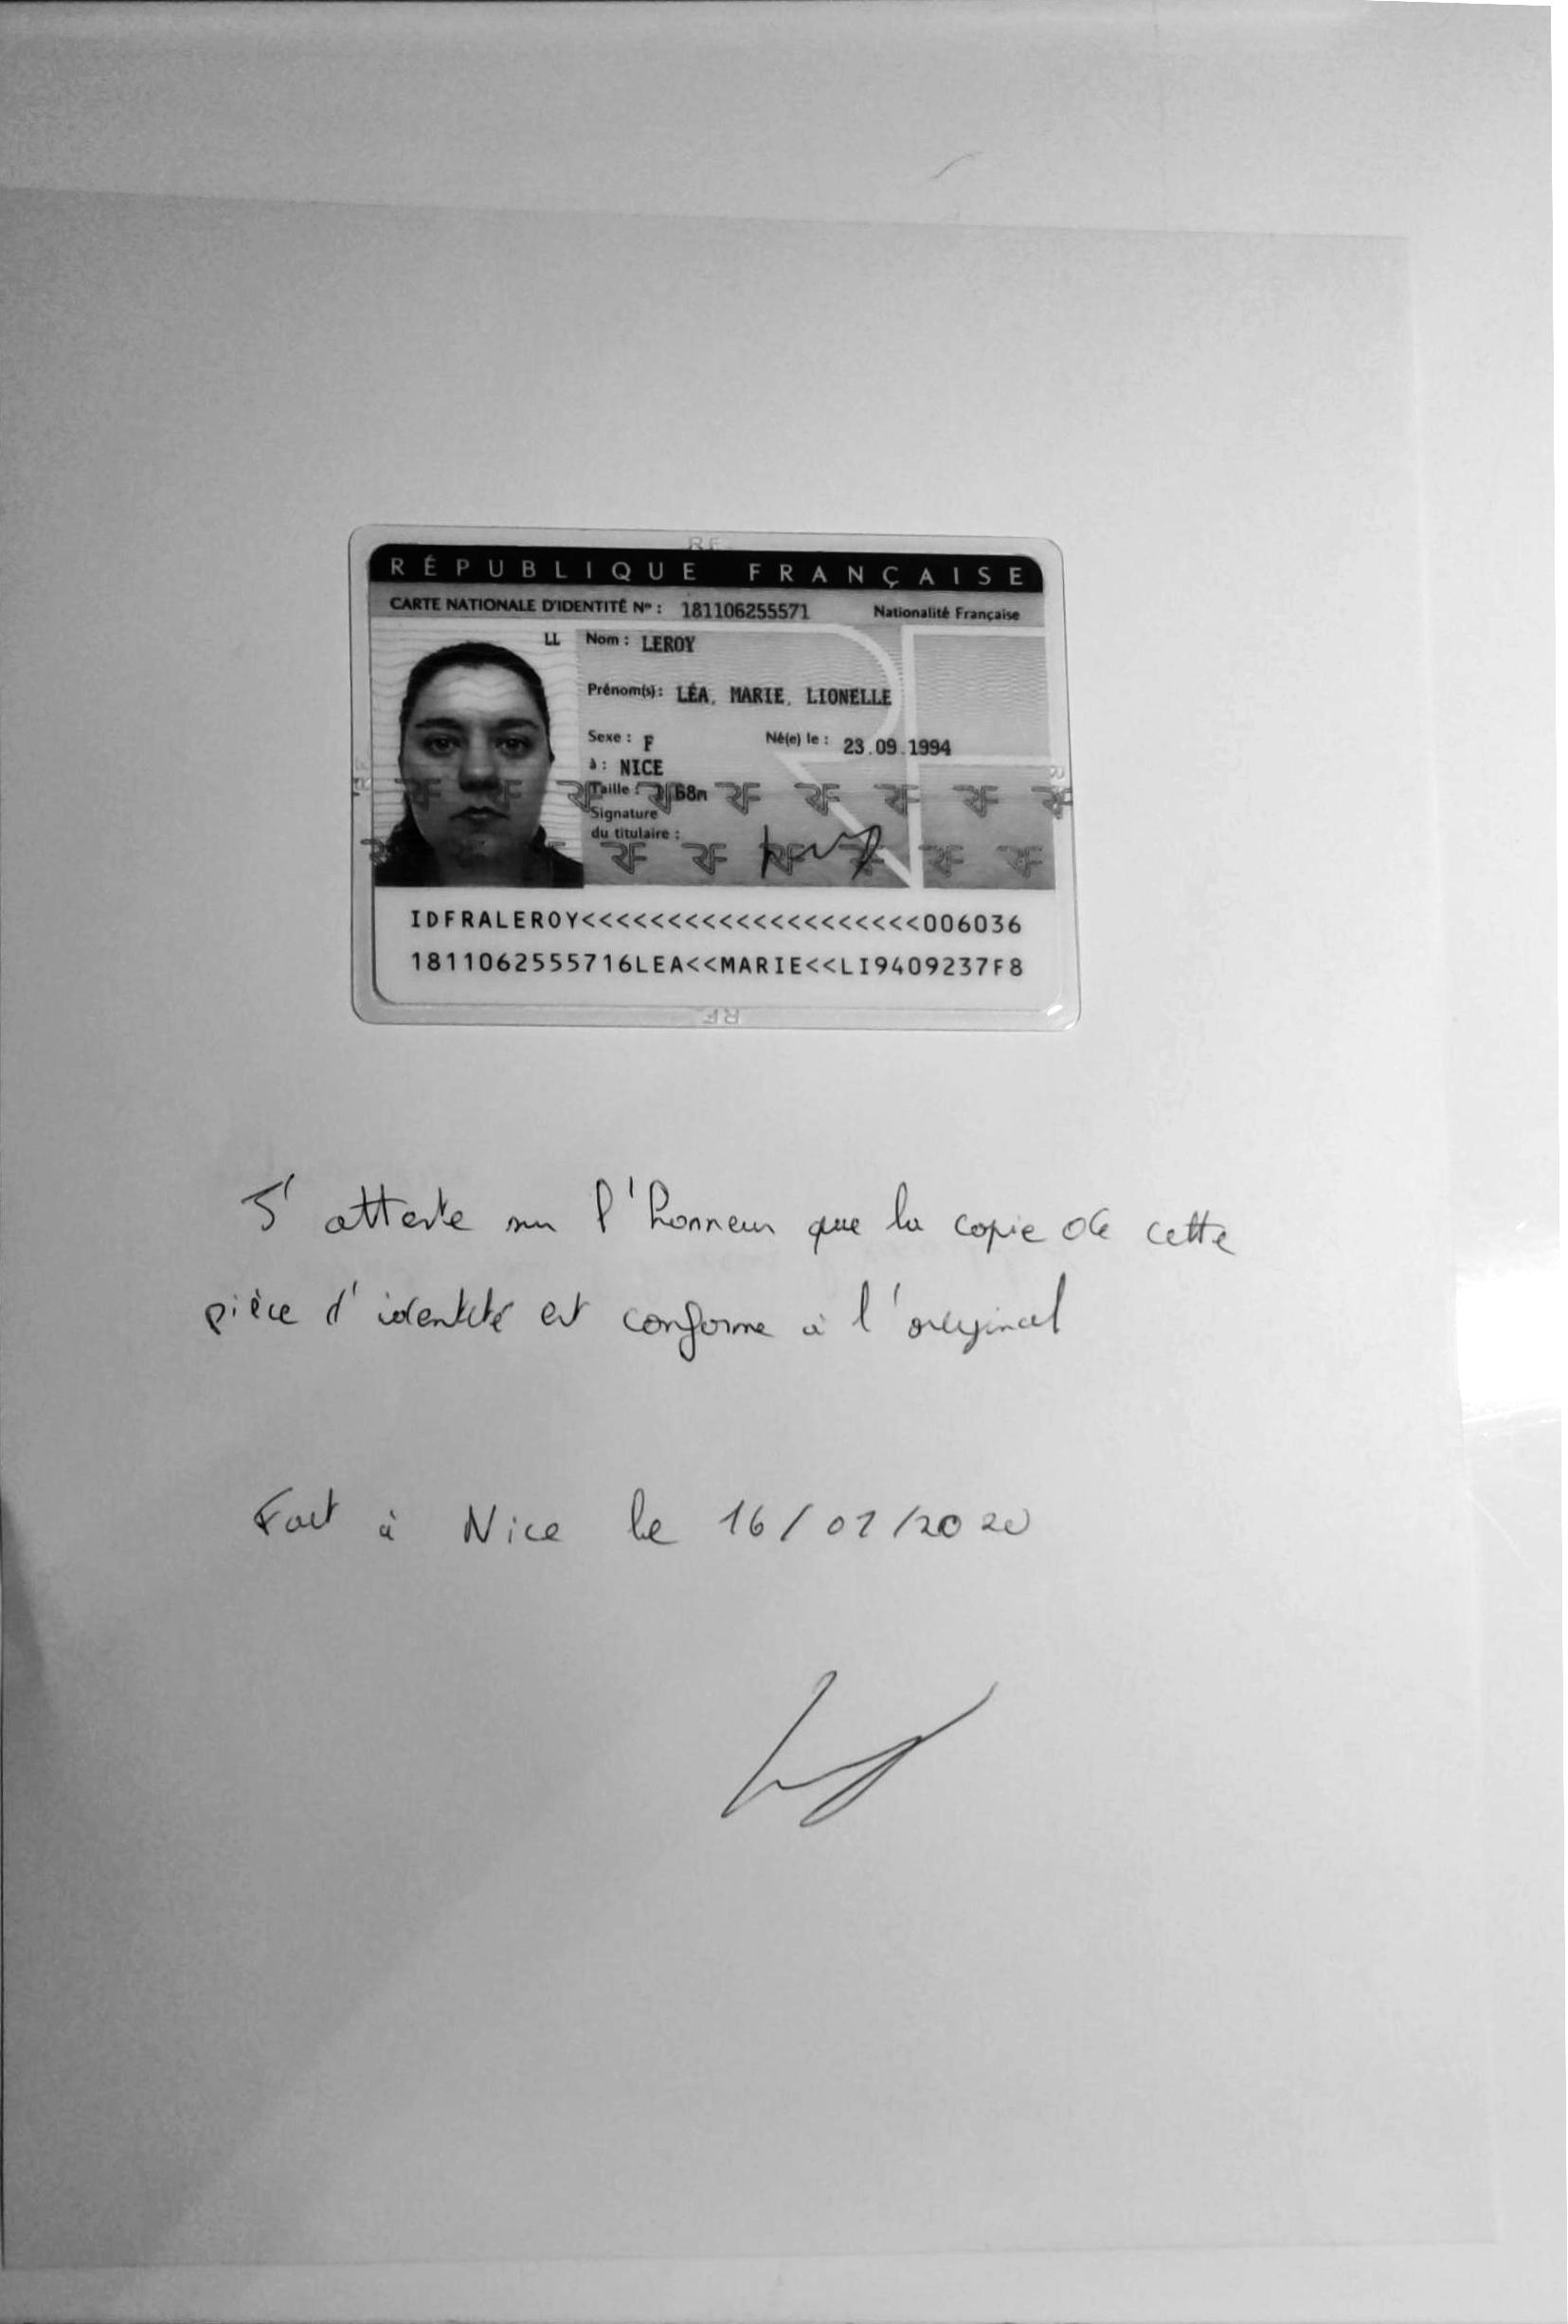 RÉPUBLIQUE FRANÇAISE
CARTE NATIONALE D'IDENTITÉ Nº : 181106255571 Nationalité Française
LL Nom : LEROY
Prénom(s) : LÉA, MARIE, LIONELLE
Sexe : F Né(e) le : 23.09.1994
à : NICE
Taille : 68m
Signature
du titulaire :
IDFRALEROY<<<<<<<<<<<<<<<<<<<<006036
1811062555716LEA<<MARIE<<LI9409237F8
J'atteste sur l'honneur que la copie de cette
pièce d'identité est conforme à l'original
Fait à Nice le 16/01/2020